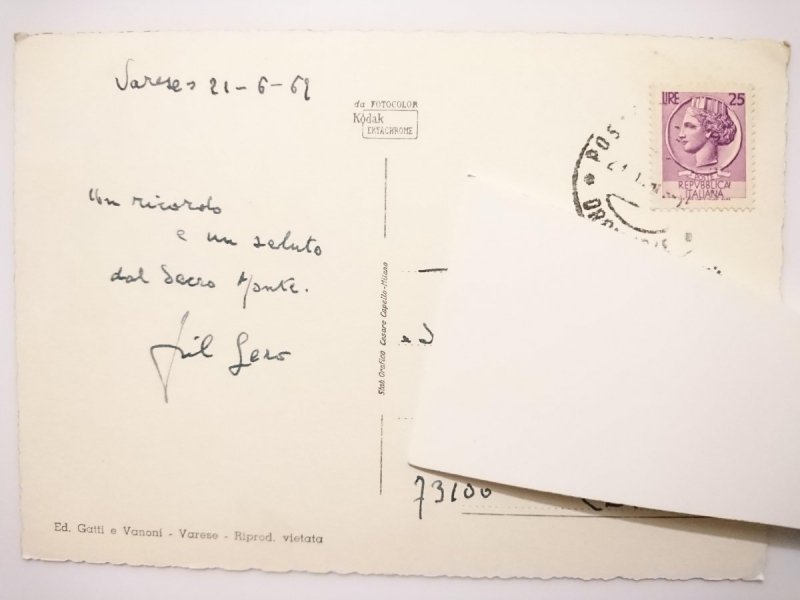 Varese 21-6-69
da FOTOCOLOR
Kodak
EKTACHROME
LIRE 25
POSTE
REPVBBLICA
ITALIANA
Un ricordo
e un saluto
dal Sacro Monte.
Stab. Grafico Cesare Capello-Milano
73100
Ed. Gatti e Vanoni - Varese - Riprod. vietata